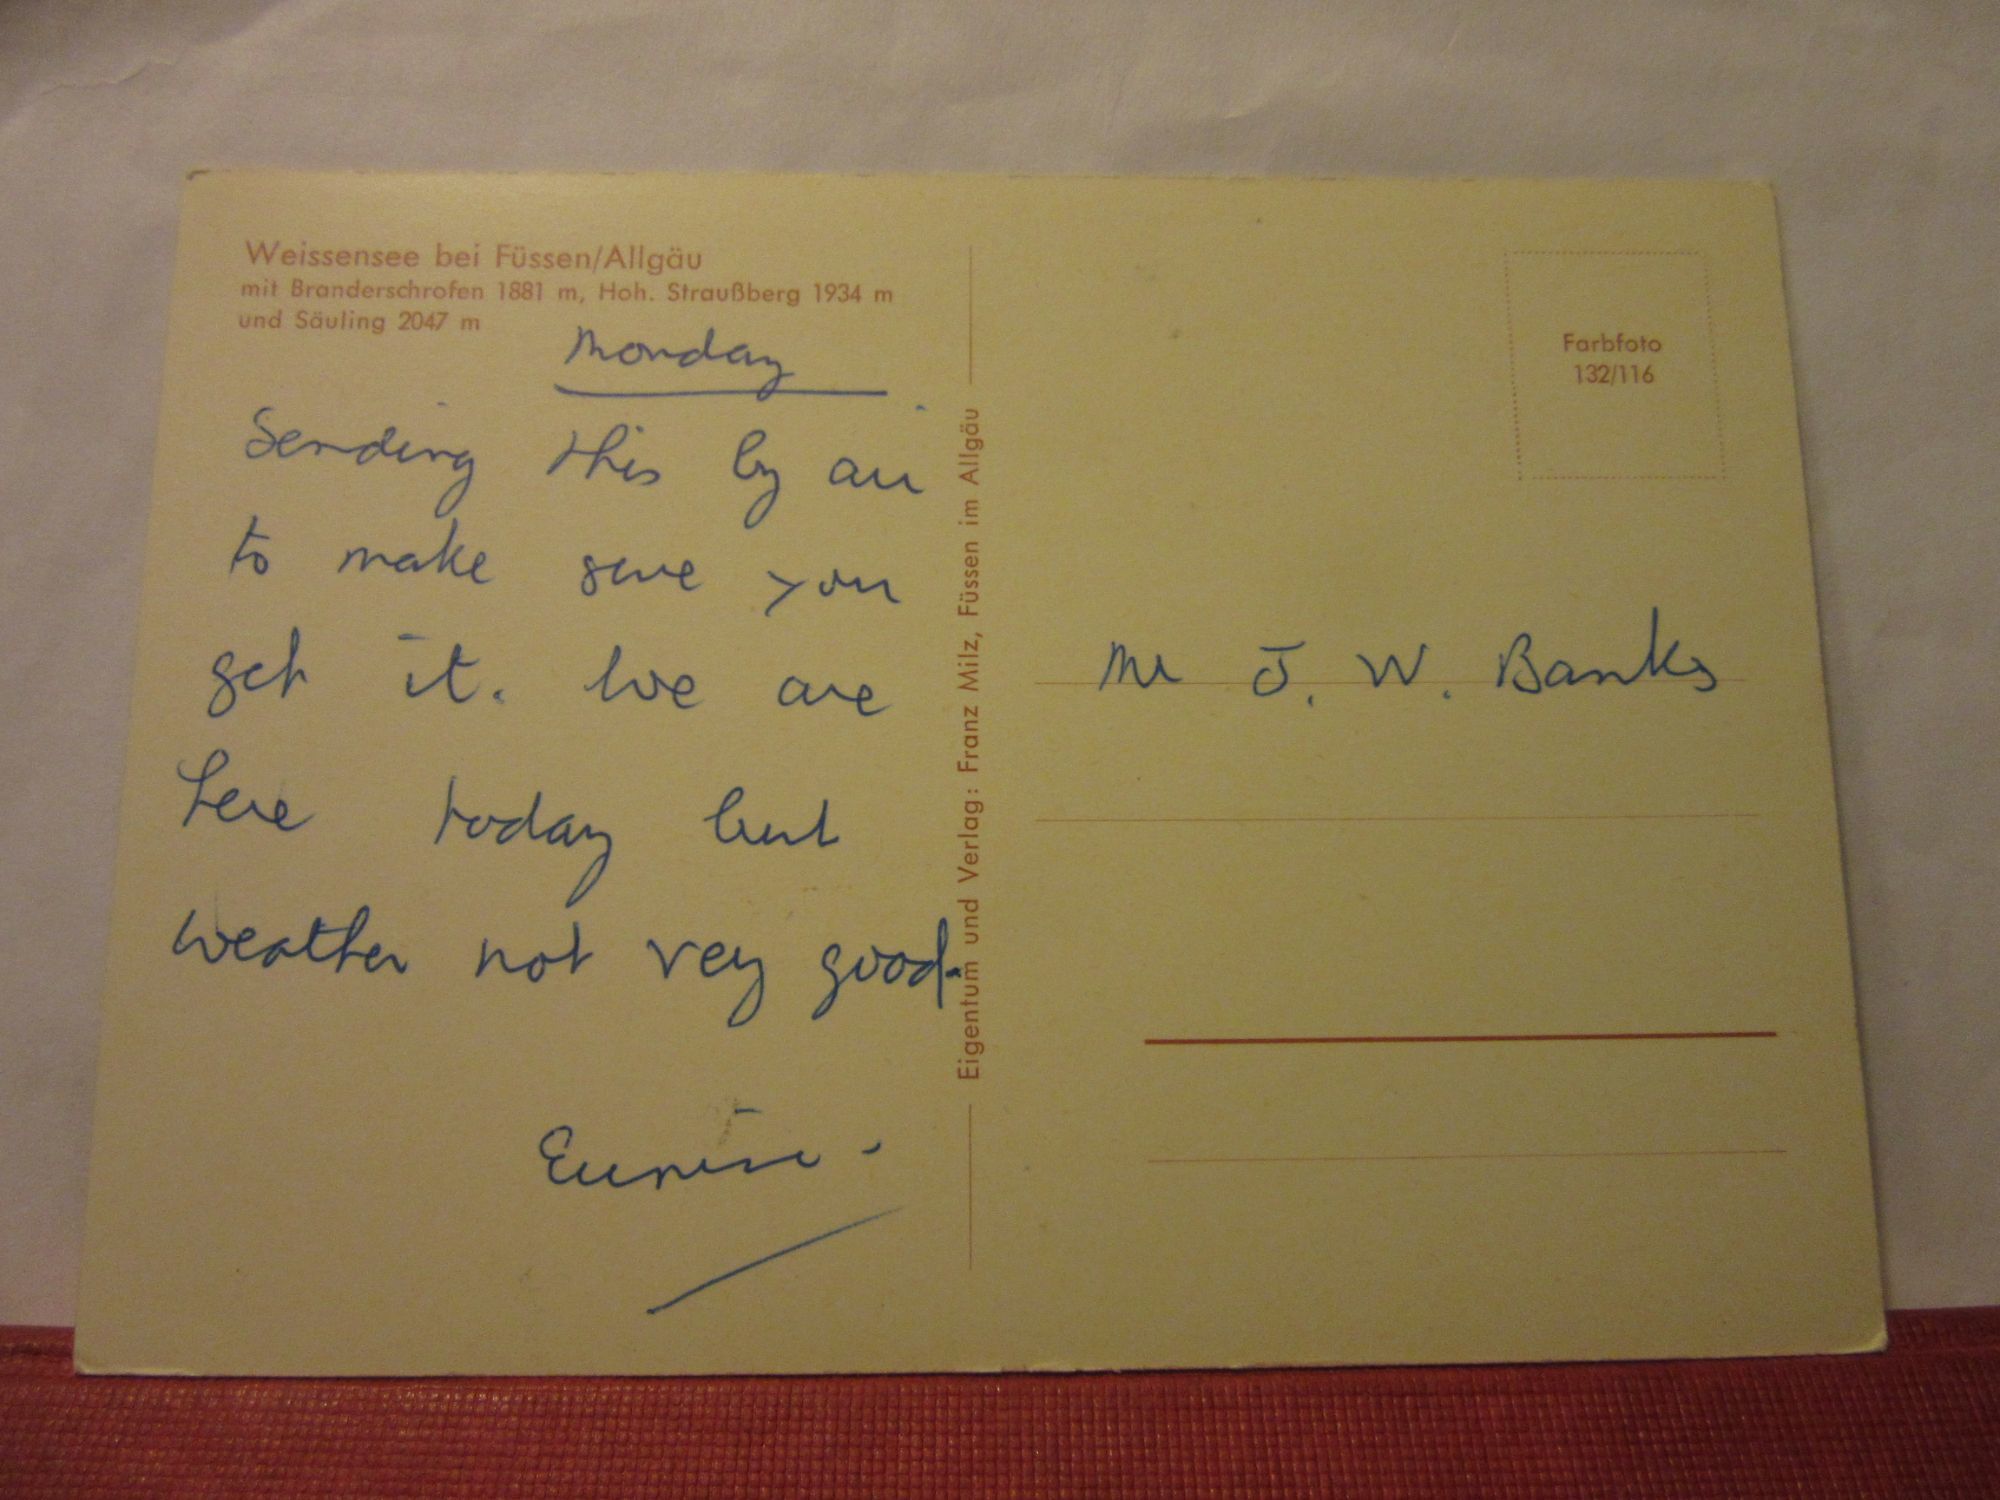 Weissensee bei Füssen/Allgäu
mit Branderschrofen 1881 m, Hoh. Straußberg 1934 m
und Säuling 2047 m
Monday
Sending this by air
to make sure you
get it. We are
here today but
weather not very good.
Eunice.
Eigentum und Verlag: Franz Milz, Füssen im Allgäu
Farbfoto
132/116
Mr J. W. Banks